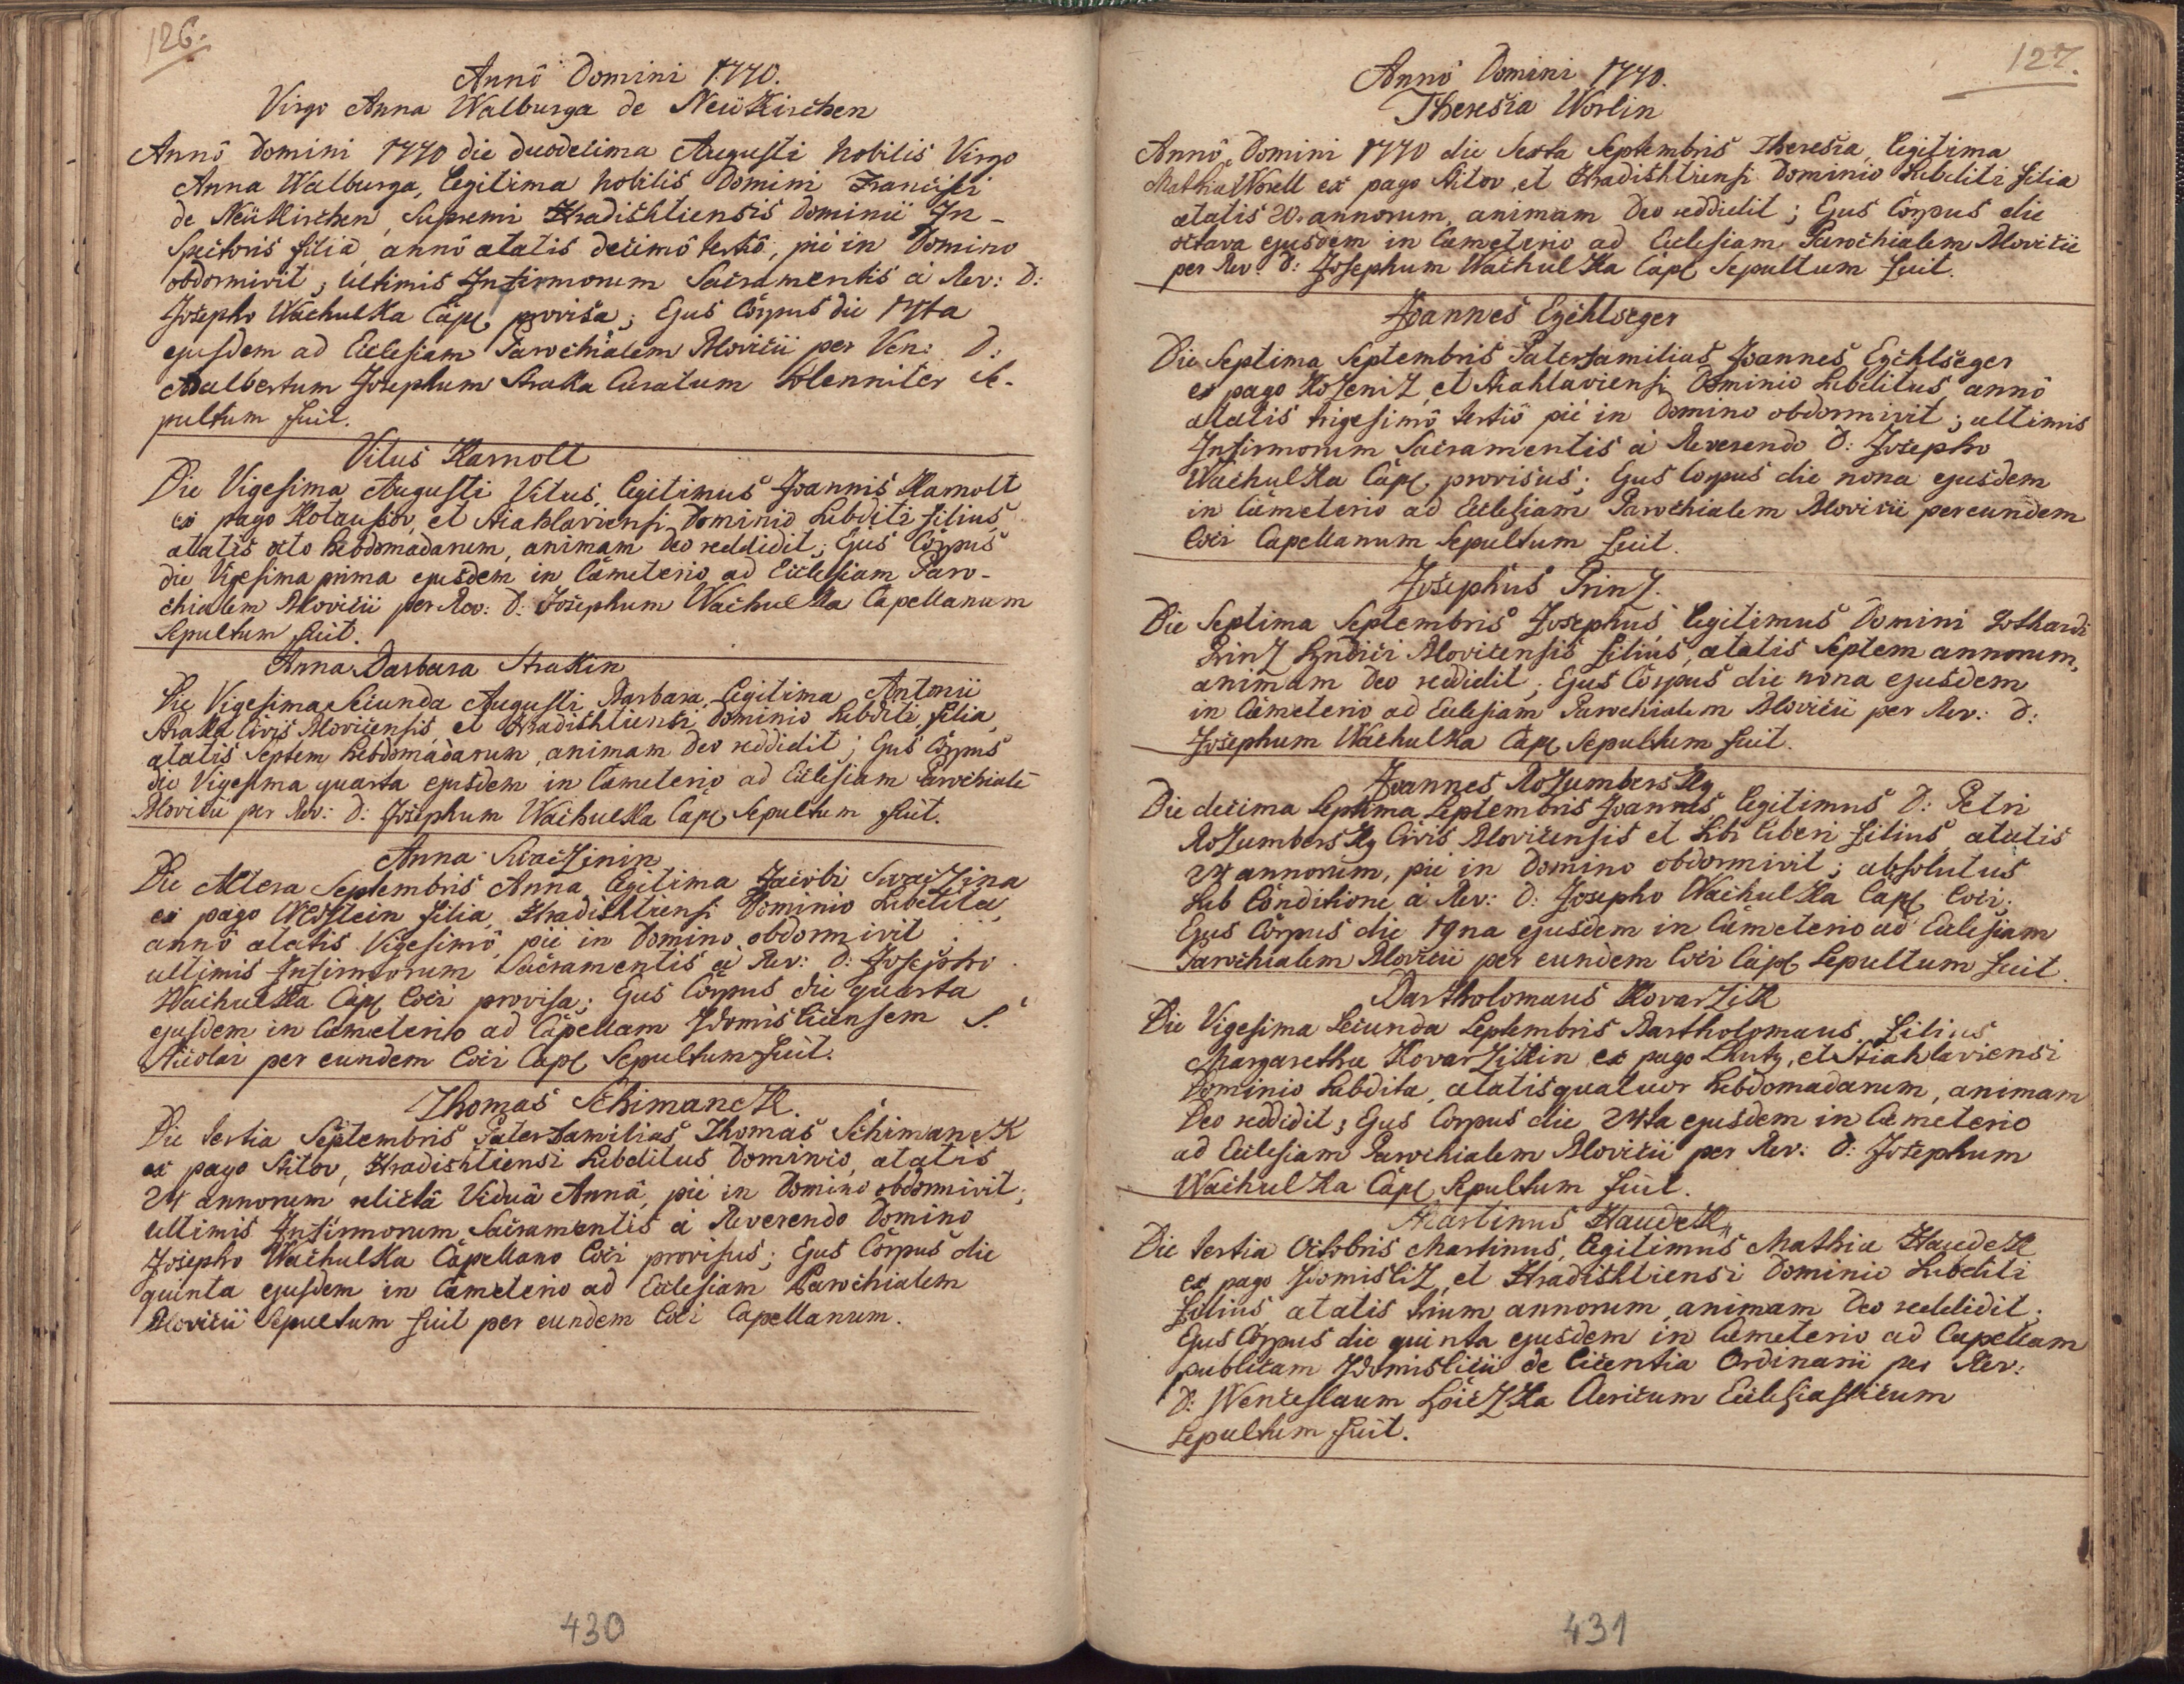 126.
Annô Domini 1770.
Virgo Anna Walburga de NeüKirchen
Annô Domini 1770 die duodecima Augusti Nobilis Virgo
Anna Walburga, legitima Nobilis Domini Francisci
de NeüKirchen, Supremi Hradishtiensis Dominii In-
spectoris filia, annô ætatis decimô tertiô, piè in Domino
obdormivit; ultimis Infirmorum Sacramentis à Rev: D:
Josepho WachulKa Capl. provisa; Ejus Corpus die 14ta
ejusdem ad Ecclesiam Parochialem Blovicii per Ven: D:
Adalbertum Josephum StraKa Curatum Solenniter se-
pultum fuit.
Vitus Karnolt
Die Vigesima Augusti Vitus, legitimus Joannis Karnolt
ex pago Kotaussov, et Stiahlaviensi Dominio Subditi filius,
ætatis octo hebdomadarum, animam Deo reddidit; Ejus Corpus
die Vigesima prima ejusdem in Cæmeterio ad Ecclesiam Paro-
chialem Blovicii per Rev: D: Josephum WachulKa Capellanum
Sepultum fuit.
Anna Barbara StraKin
Die Vigesima Secunda Augusti Barbara, legitima Antonii
StraKa Civis Blovicensis, et Hradishtiensi Dominio Subditi filia,
ætatis Septem hebdomadarum, animam Deo reddidit; Ejus Corpus
die Vigesima quarta ejusdem in Cæmeterio ad Ecclesiam Parochialē
Blovicii per Rev: D: Josephum WachulKa Capl. Sepultum fuit.
Anna SwacZinin
Die Altera Septembris Anna, legitima Jacobi SwacZina
ex pago Wildstein filia, Hradishtiensi Dominio Subdita,
annô ætatis Vigesimô, piè in Domino obdormivit;
ultimis Infirmorum Sacramentis à Rev: D: Josepho
WachulKa Capl. Loci provisa; Ejus Corpus die quarta
ejusdem in Cæmeterio ad Capellam Zdomislicensem S.
Nicolai per eundem Loci Capl. Sepultum fuit.
Thomas SchimaneK.
Die tertia Septembris Paterfamilias Thomas SchimaneK
ex pago Stitov, Hradishtiensi Subditus Dominio, ætatis
24 annorum, relictâ Viduâ Annâ, piè in Domino obdormivit;
ultimis Infirmorum Sacramentis à Reverendo Domino
Josepho WachulKa Capellano Loci provisus; Ejus Corpus die
quinta ejusdem in Cæmeterio ad Ecclesiam Parochialem
Blovicii Sepultum fuit per eundem Loci Capellanum.
430
127.
Annô Domini 1770.
Theresia Worlin
Annô Domini 1770 die Sexta Septembris Theresia, legitima
Mathiæ Worell ex pago Stitov, et Hradishtiensi Dominio Subditi filia
ætatis 20. annorum, animam Deo reddidit; Ejus Corpus die
octava ejusdem in Cæmeterio ad Ecclesiam Parochialem Blovicii
per Rev: D: Josephum WachulKa Capl. Sepultum fuit.
Joannes Egchlseger
Die Septima Septembris Paterfamilias Joannes Egchlseger
ex pago KoZeniZ, et Stiahlaviensi Dominio Subditus, annô
ætatis trigesimô tertiô piè in Domino obdormivit; ultimis
Infirmorum Sacramentis à Reverendo D: Josepho
WachulKa Capl. provisus; Ejus Corpus die nona ejusdem
in Cæmeterio ad Ecclesiam Parochialem Blovicii per eundem
Loci Capellanum Sepultum fuit.
Josephus PrinZ.
Die Septima Septembris Josephus legitimus Domini Gothardi
PrinZ Syndici Blovicensis filius, ætatis Septem annorum,
animam Deo reddidit; Ejus Corpus die nona ejusdem
in Cæmeterio ad Ecclesiam Parochialem Blovicii per Rev: D:
Josephum WachulKa Capl. Sepultum fuit.
Joannes RoZumbersKy
Die decima Septima Septembris Joannes legitimus D: Petri
RoZumbersKy Civis Blovicensis et Sibi liberi filius, ætatis
24 annorum, piè in Domino obdormivit; absolutus
Sub Conditione à Rev: D: Josepho WachulKa Capl. Loci.
Ejus Corpus die 19na ejusdem in Cæmeterio ad Ecclesiam
Parochialem Blovicii per eundem Loci Capl. Sepultum fuit.
Bartholomæus KovarZiK
Die Vigesima Secunda Septembris Bartholomæus, filius
Margarethæ KovarZiKin ex pago Chuty, et Stiahlaviensi
Dominio Subdita, ætatis quatuor hebdomadarum, animam
Deo reddidit; Ejus Corpus die 24ta ejusdem in Cæmeterio
ad Ecclesiam Parochialem Blovicii per Rev: D: Josephum
WachulKa Capl. Sepultum fuit.
Martinus HaudeK
Die tertia Octobris Martinus, legitimus Mathiæ HaudeK
ex pago ZdomisliZ, et Hradishtiensi Dominio Subditi
filius ætatis trium annorum, animam Deo reddidit;
Ejus Corpus die quinta ejusdem in Cæmeterio ad Capellam
publicam Zdomislicii de licentia Ordinarii per Rev:
D: Wenceslaum Clericum Ecclesiasticum
Sepultum fuit.
431